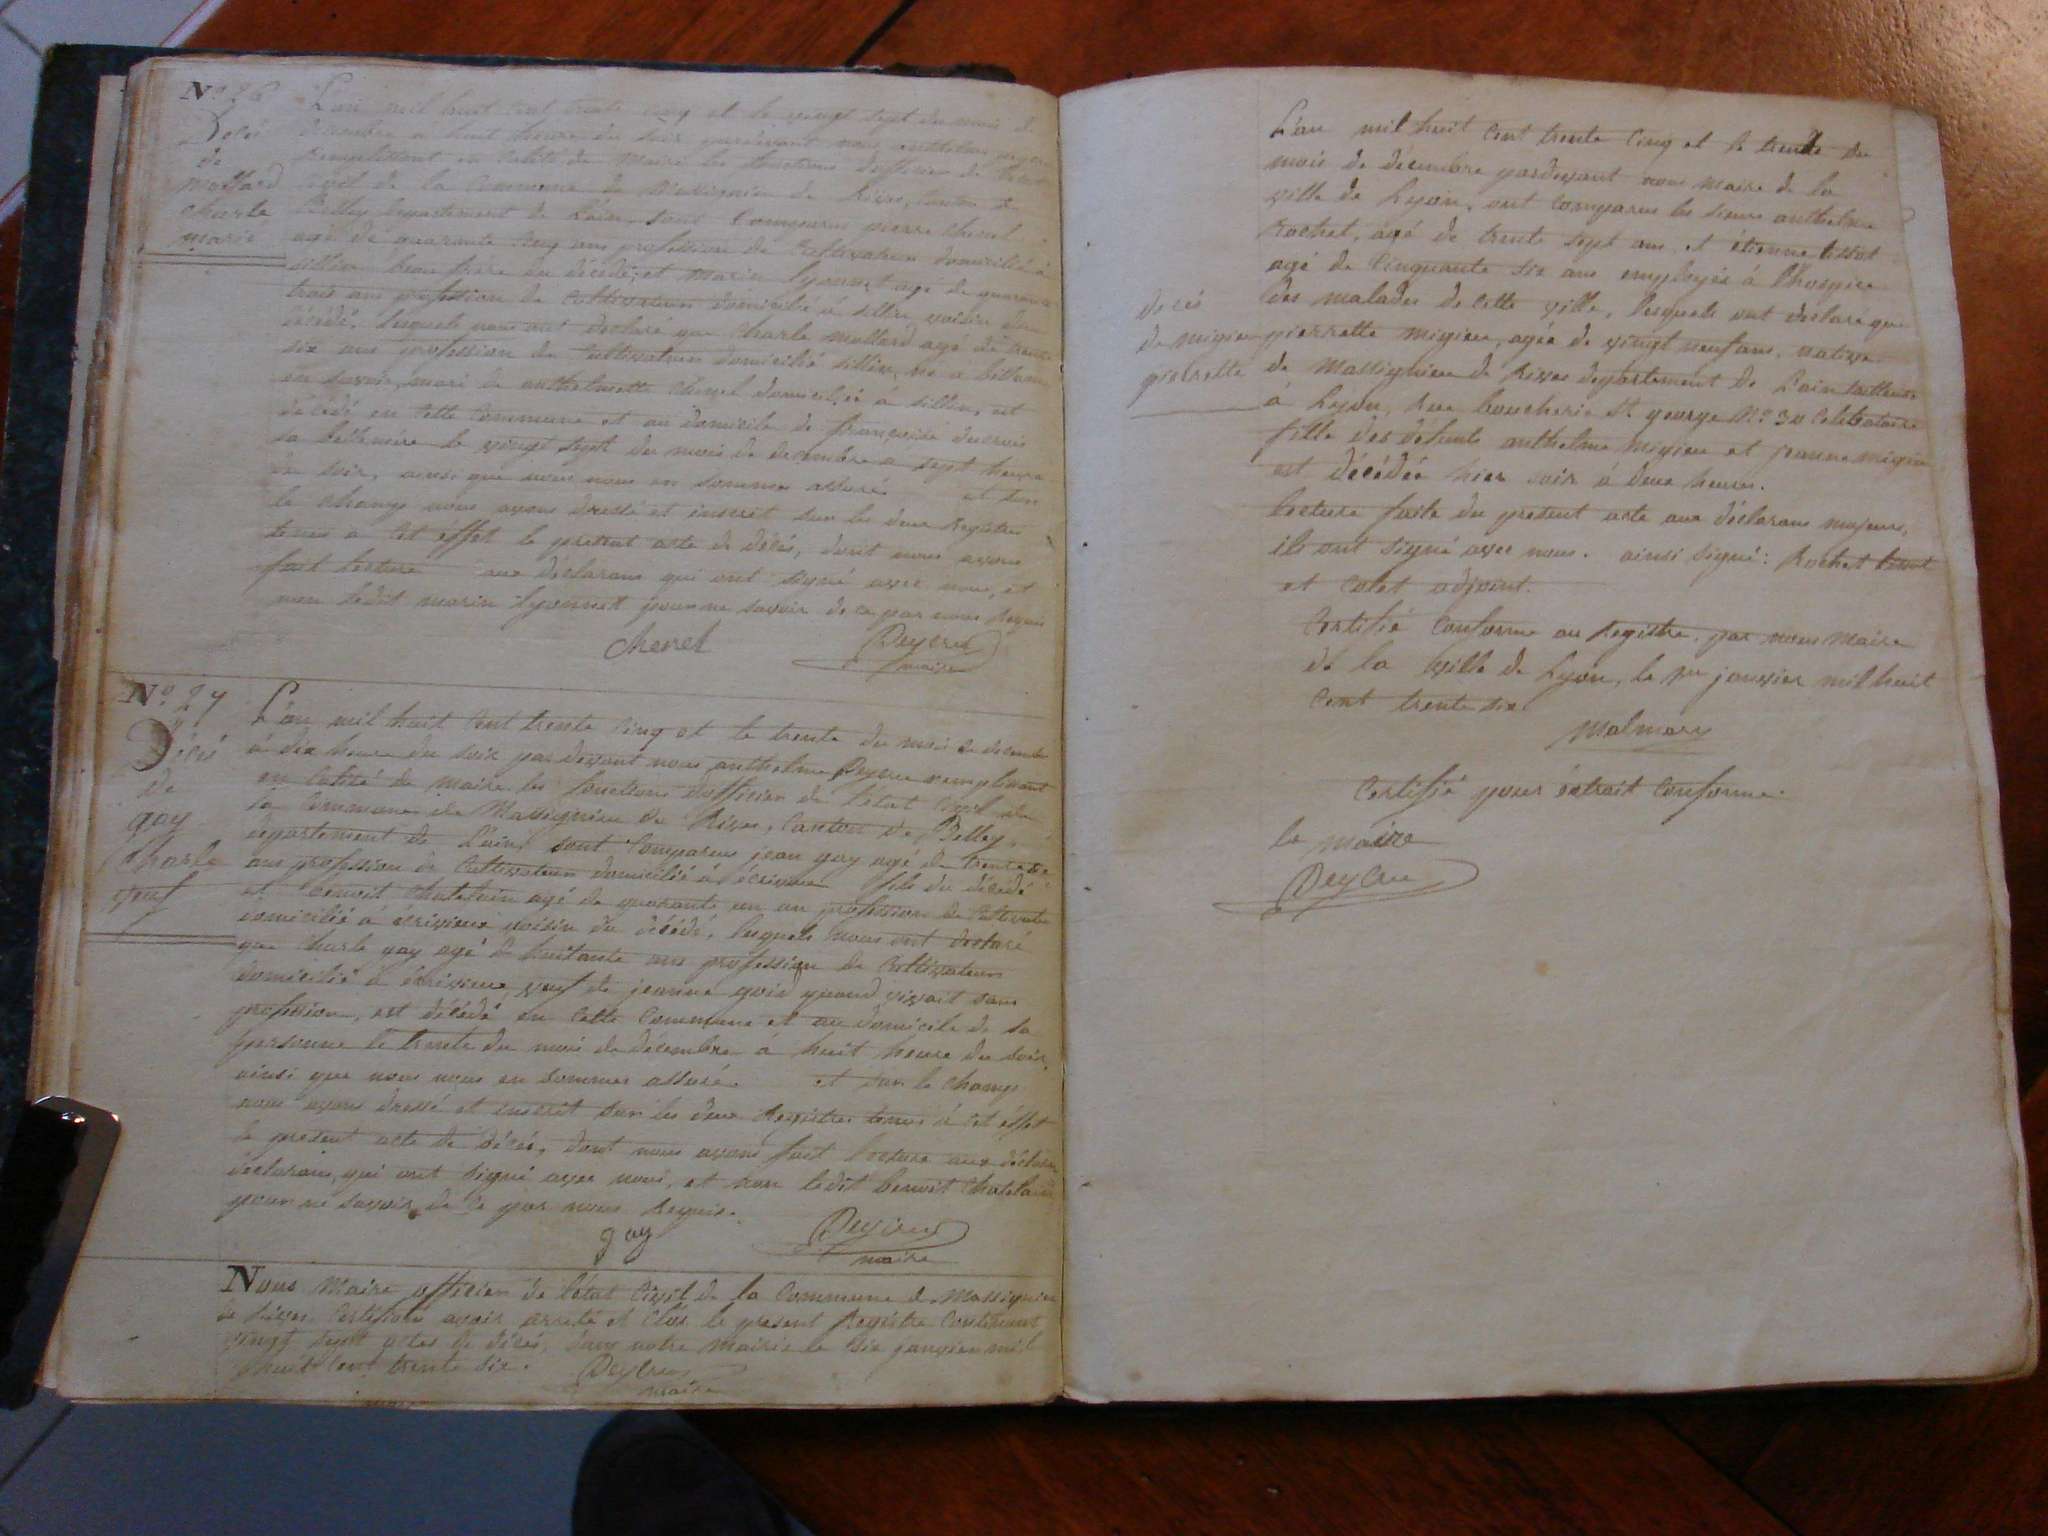 No. 26
Décé
de
mollard
charle
marié
L'an mil huit cent trente cinq et le vingt sept du mois de
décembre a huit heure du soir pardevant nous anthelme
remplissant en calité de maire les fonctions d'officier de l'état
civil de la commune de Massignieu de Rives, canton de
Belley département de l'ain sont comparus pierre chenel
agé de quarante cinq ans profession de cultivateur domicilié à
sillin beau frère du décédé, et marin lyonnet agé de quarante
trois ans profession de cultivateur domicilié à sillin voisin du
décédé, lesquels nous ont declaré que charle mollard agé de trente
six ans profession de cultivateur domicilié sillin, né a
en savoie, mari de anthelmette chenel domiciliée à sillin, est
décédé en cette commune et au domicile de françoise
sa bellemère le vingt sept du mois de decembre à sept heures
du soir, ainsi que nous nous en sommes assuré et sur
le champ nous avons dressé et inscrit sur les deux registres
tenus a cet éffet le present acte de décés, dont nous avons
fait lecture aux déclarans qui ont signé avec nous, et
non ledit marin lyonnet pour ne savoir de ce par nous requis
chenel Peyrieu
maire
No. 27
Décé
de
gay
charle
veuf
L'an mil huit cent trente cinq et le trente du mois de décembre
à dix heure du soir par devant nous anthelme Peyrieu remplissant
en calité de maire les fonctions d'officier de l'état civil de
la commune de Massignieu de Rives, canton de Belley,
département de l'ain, sont comparus jean gay agé de trente
ans profession de cultivateur domicilié à écrivieu fils du décédé
et benoit chatelain agé de quarante un an profession de cultivateur
domicilié a écrivieux voisin du décédé, lesquels nous ont declaré
que charle gay agé de huitante ans profession de cultivateur
domicilié à écrivieux, veuf de jeanne goid quand vivait sans
profession, est décédé en cette commune et au domicile de sa
personne le trente du mois de décembre à huit heure du soir,
ainsi que nous nous en sommes assuré. et sur le champ
nous avons dressé et inscrit sur les deux registres tenus à cet éffet
le present acte de décés, dont nous avons fait lecture aux
déclarans, qui ont signé avec nous, et non ledit benoit chatelain
pour ne savoir de ce par nous requis.
gay Peyrieu
maire
Nous Maire officier de l'état civil de la commune de Massignieu
de Rives certifions avoir arreté et clos le present registre contenant
vingt sept actes de décés, dans notre mairie le six janvier mil
huit cent trente six. Peyrieu
maire
L'an mil huit cent trente cinq et le trente du
mois de décembre pardevant nous maire de la
ville de Lyon, ont comparus les sieurs anthelme
Rochet, agé de trente sept ans et étienne tissot
agé de cinquante six ans employés à l'hospice
des malades de cette ville, lesquels ont declaré que
décés
de migieu
pierrette
pierrette migieu, agée de vingt neuf ans, native
de Massignieu de Rives département de l'ain tailleuse
à Lyon, Rue boucherie St george No. 30 célibataire
fille des défunts anthelme migieu et jeanne migieu
est décédée hier soir à deux heures.
lecture faite du present acte aux déclarans majeurs,
ils ont signé avec nous. ainsi signé: Rochet tissot
et Colet adjoint.
Certifié conforme au Registre par nous Maire
de la ville de Lyon, le 1er janvier mil huit
cent trente six.
Malmary
Certifié pour éxtrait conforme.
le maire
Peyrieu